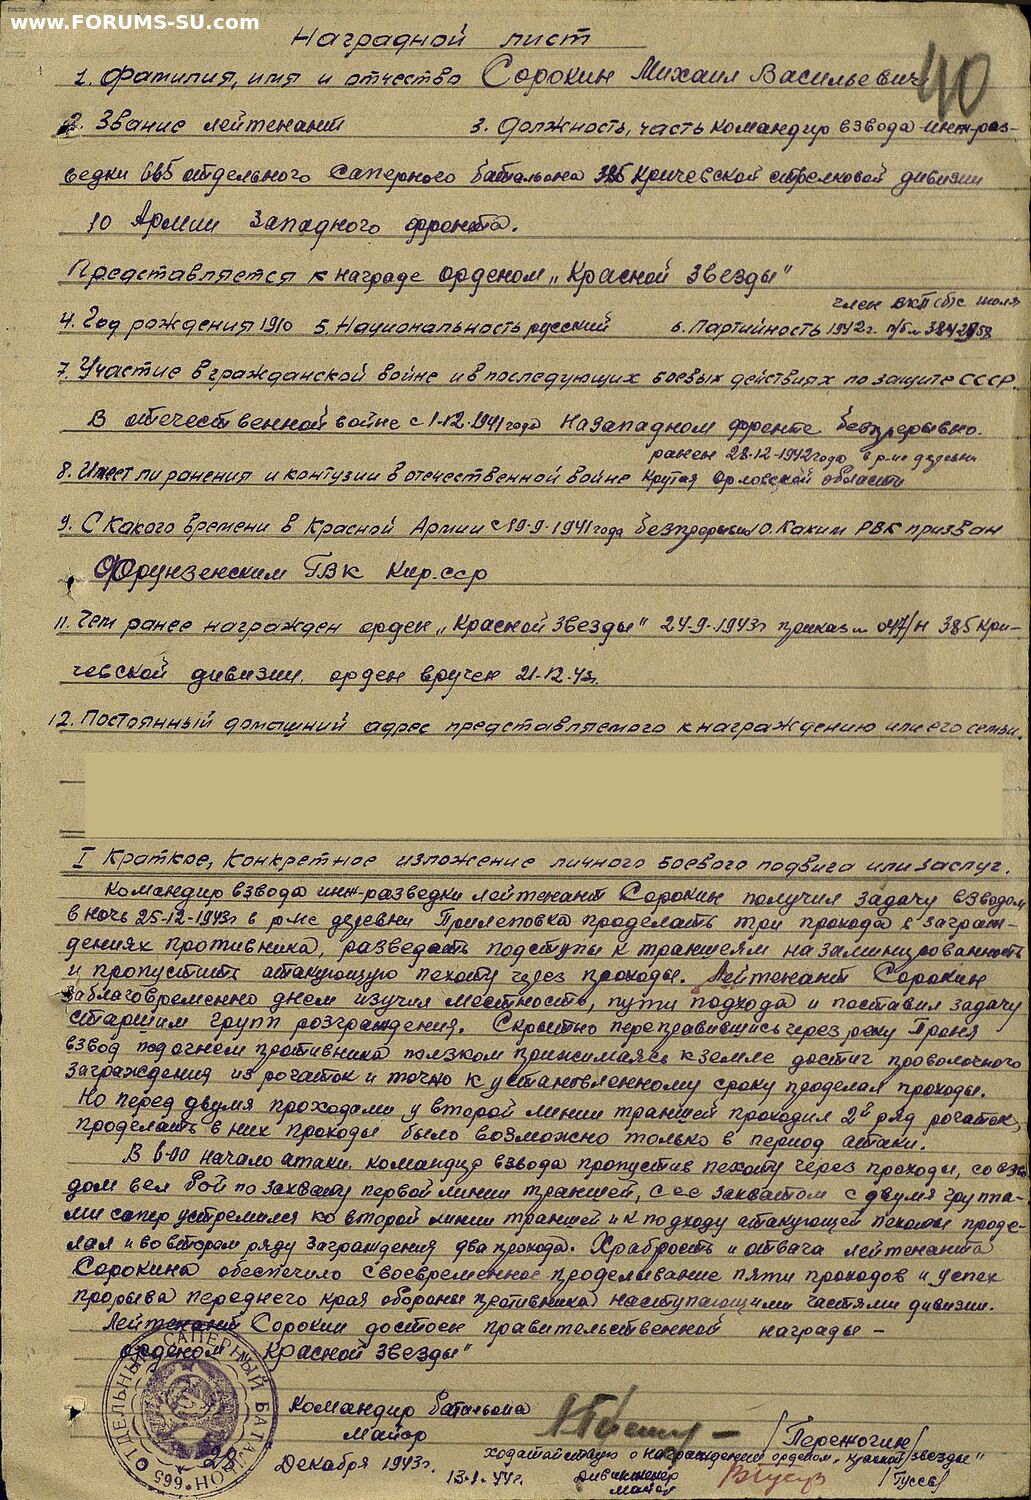 www.FORUMS-SU.com
Наградной лист
40
1. Фамилия, имя и отчество Сорокин Михаил Васильевич
2. Звание лейтенант 3. Должность, часть командир взвода инж-раз-
ведки 665 отдельного саперного батальона 385 Кричевской стрелковой дивизии
10 Армии Западного фронта.
Представляется к награде орденом „Красной Звезды"
член ВКП(б) с июля
4. Год рождения 1910 5. Национальность русский 6. Партийность 1942г. п/б №
7. Участие в гражданской войне и в последующих боевых действиях по защите СССР.
В отечественной войне с 1-12-1941 года На западном фронте беспрерывно.
ранен 28-12-1942 года в р-не деревни
8. Имеет ли ранения и контузии в отечественной войне Крутая Орловской области
9. С какого времени в Красной Армии с 19-9-1941 года беспрерывно 10. Каким РВК призван
Фрунзенским ГВК Кир.сср
11. Чем ранее награжден орден „Красной Звезды" 24-9-1943г приказ № 047/н 385 Кри-
чевской дивизии. орден вручен 21-12-43г.
12. Постоянный домашний адрес представляемого к награждению или его семьи.
I Краткое, конкретное изложение личного боевого подвига или заслуг.
Командир взвода инж-разведки лейтенант Сорокин получил задачу взводом
в ночь 25-12-1943г в р-не деревни Прилеповка проделать три прохода в заграж-
дениях противника, разведать подступы к траншеям на заминированность
и пропустить атакующую пехоту через проходы. Лейтенант Сорокин
заблаговременно днем изучил местность, пути подхода и поставил задачу
старшим групп розграждения. Скрытно переправившись через реку Проня
взвод под огнем противника ползком прижимаясь к земле достиг проволочного
заграждения из рогаток и точно к установленному сроку проделал проходы.
Но перед двумя проходами у второй линии траншей проходил 2й ряд рогаток,
проделать в них проходы было возможно только в период атаки.
В 6-00 начало атаки. командир взвода пропустив пехоту через проходы, со взво
дом вел бой по захвату первой линии траншей, с ее захватом с двумя группа-
ми сапер устремился ко второй линии траншей и к подходу атакующей пехоты проде-
лал и во втором ряду заграждения два прохода. Храбрость и отвага лейтенанта
Сорокина обеспечило своевременное проделывание пяти проходов и успех
прорыва переднего края обороны противника наступающими частями дивизии.
Лейтенант Сорокин достоен правительственной награды –
орденом „Красной Звезды"
Командир батальона
майор /Пережогин/
28 Декабря 1943г.
Ходатайствую о награждении орденом „Красной звезды"
13.1.44г. Дивинженер
майор /Гусев/
ОТДЕЛЬНЫЙ САПЕРНЫЙ БАТАЛЬОН * 665